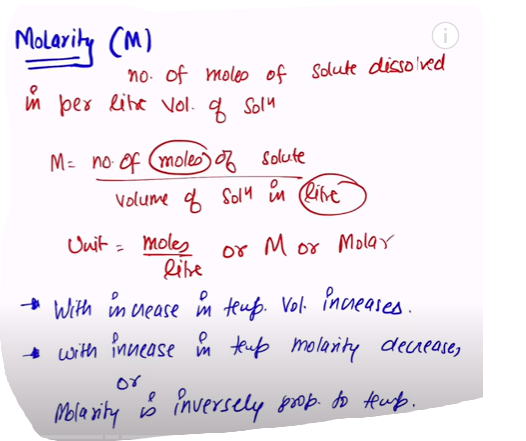 Molarity (M)
no. of moles of solute dissolved
in per litre vol. of Solⁿ
M = no. of moles of solute
volume of Solⁿ in litre
Unit = moles
litre
or M or Molar
→ With increase in temp. Vol. increases.
→ with increase in temp molarity decreases
or
Molarity is inversely prop. to temp.